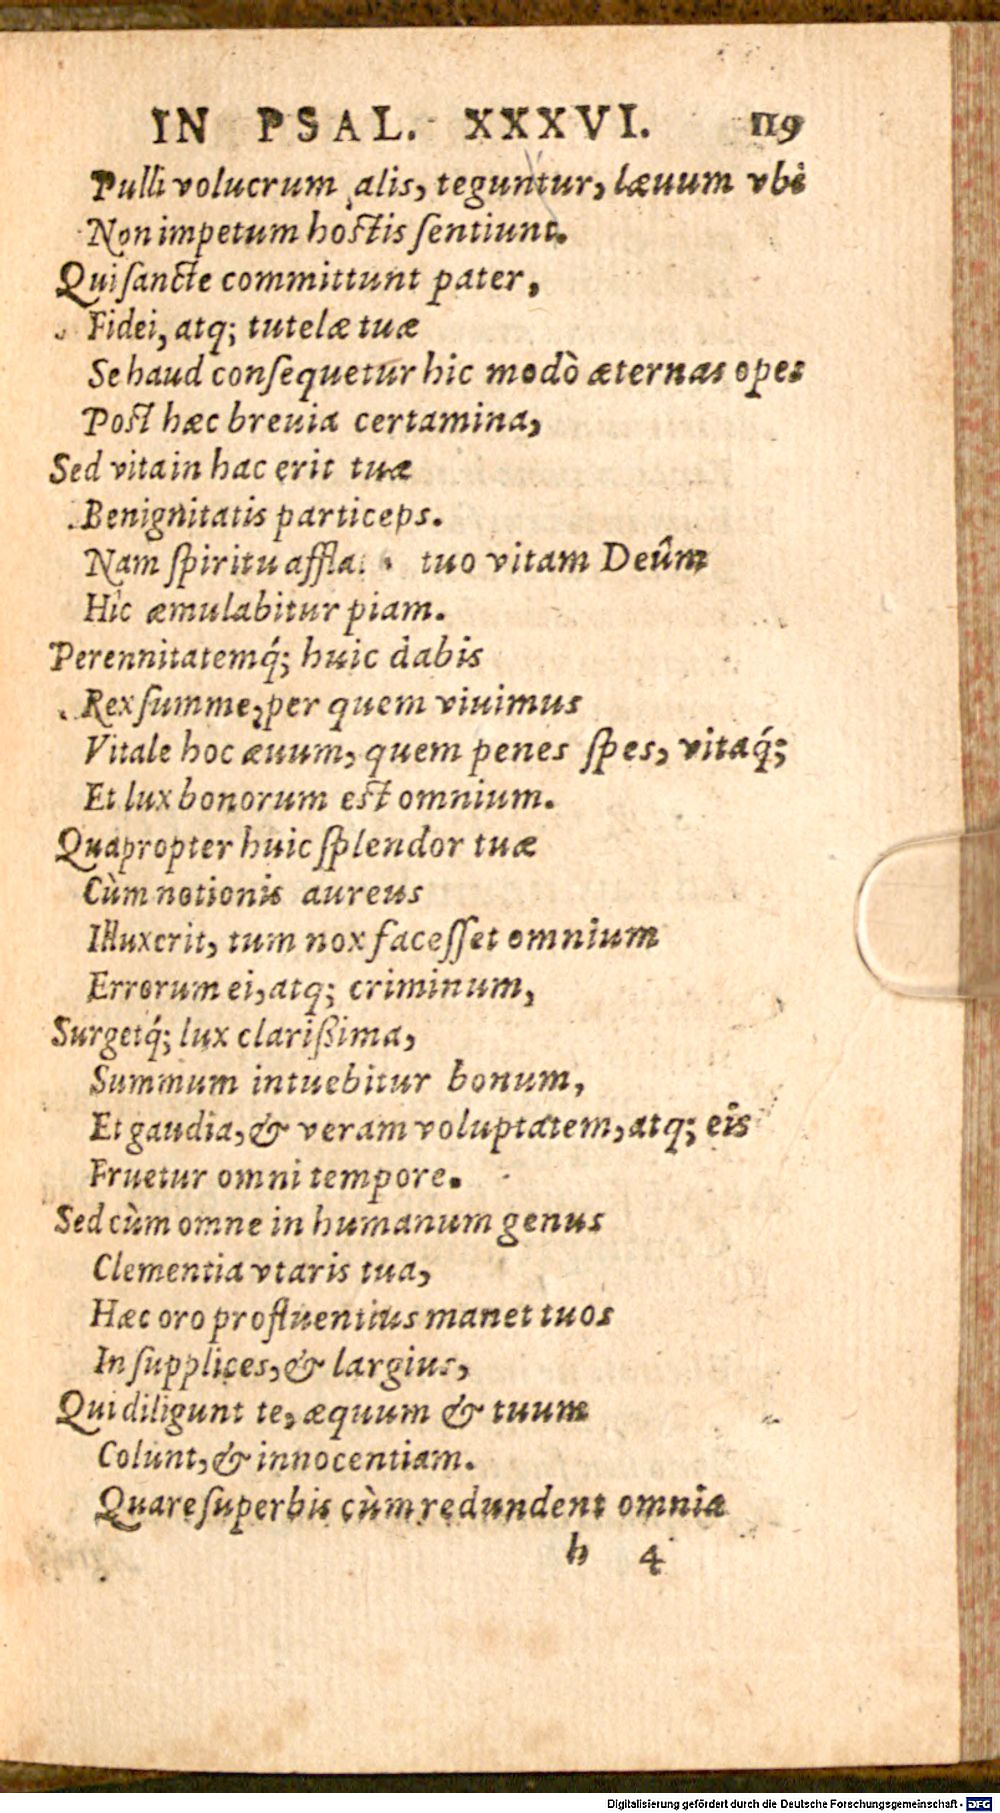 IN PSAL. XXXVI. 119
Pulli volucrum alis, teguntur, læuum vbi
Non impetum hostis ſentiunt.
Qui ſancte committunt pater,
Fidei, atq; tutelæ tuæ
Se haud conſequetur hic modò æternas opes
Post hæc breuia certamina,
Sed vita in hac erit tuæ
Benignitatis particeps.
Nam ſpiritu tuo vitam Deûm
Hic æmulabitur piam.
Perennitatemq́; huic dabis
Rex ſumme, per quem viuimus
Vitale hoc æuum, quem penes ſpes, vitaq́;
Et lux bonorum est omnium.
Quapropter huic ſplendor tuæ
Cùm notionis aureus
Illuxerit, tum nox faceſſet omnium
Errorum ei, atq; criminum,
Surgetq́; lux clarißima,
Summum intuebitur bonum,
Et gaudia, & veram voluptatem, atq; eis
Fruetur omni tempore.
Sed cùm omne in humanum genus
Clementia vtaris tua,
Hæc oro profluentius manet tuos
In ſupplices, & largius,
Qui diligunt te, æquum & tuum
Colunt, & innocentiam.
Quare ſuperbis cùm redundent omnia
h 4
Digitalisierung gefördert durch die Deutsche Forschungsgemeinschaft - DFG